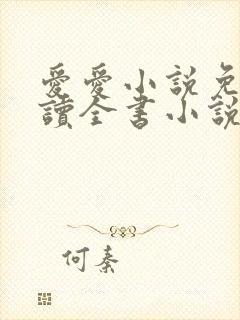 愛愛小說免
讀全書小說
何秦